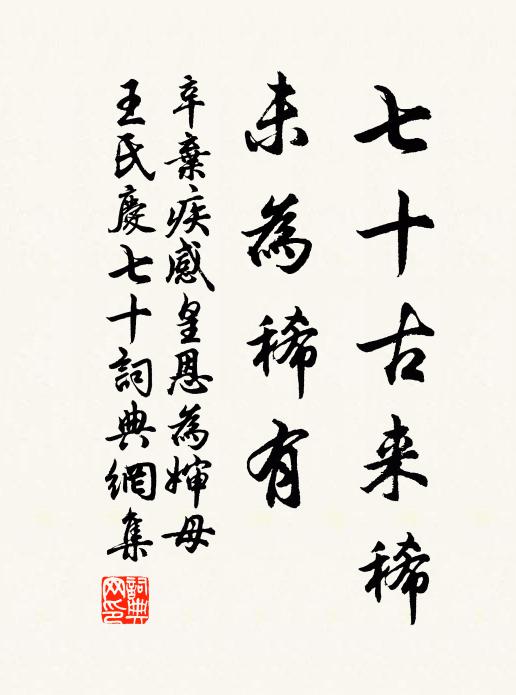 七十古来稀
未為稀有
辛棄疾感皇恩為嬸母
王氏慶七十詞典網集
詞典網印